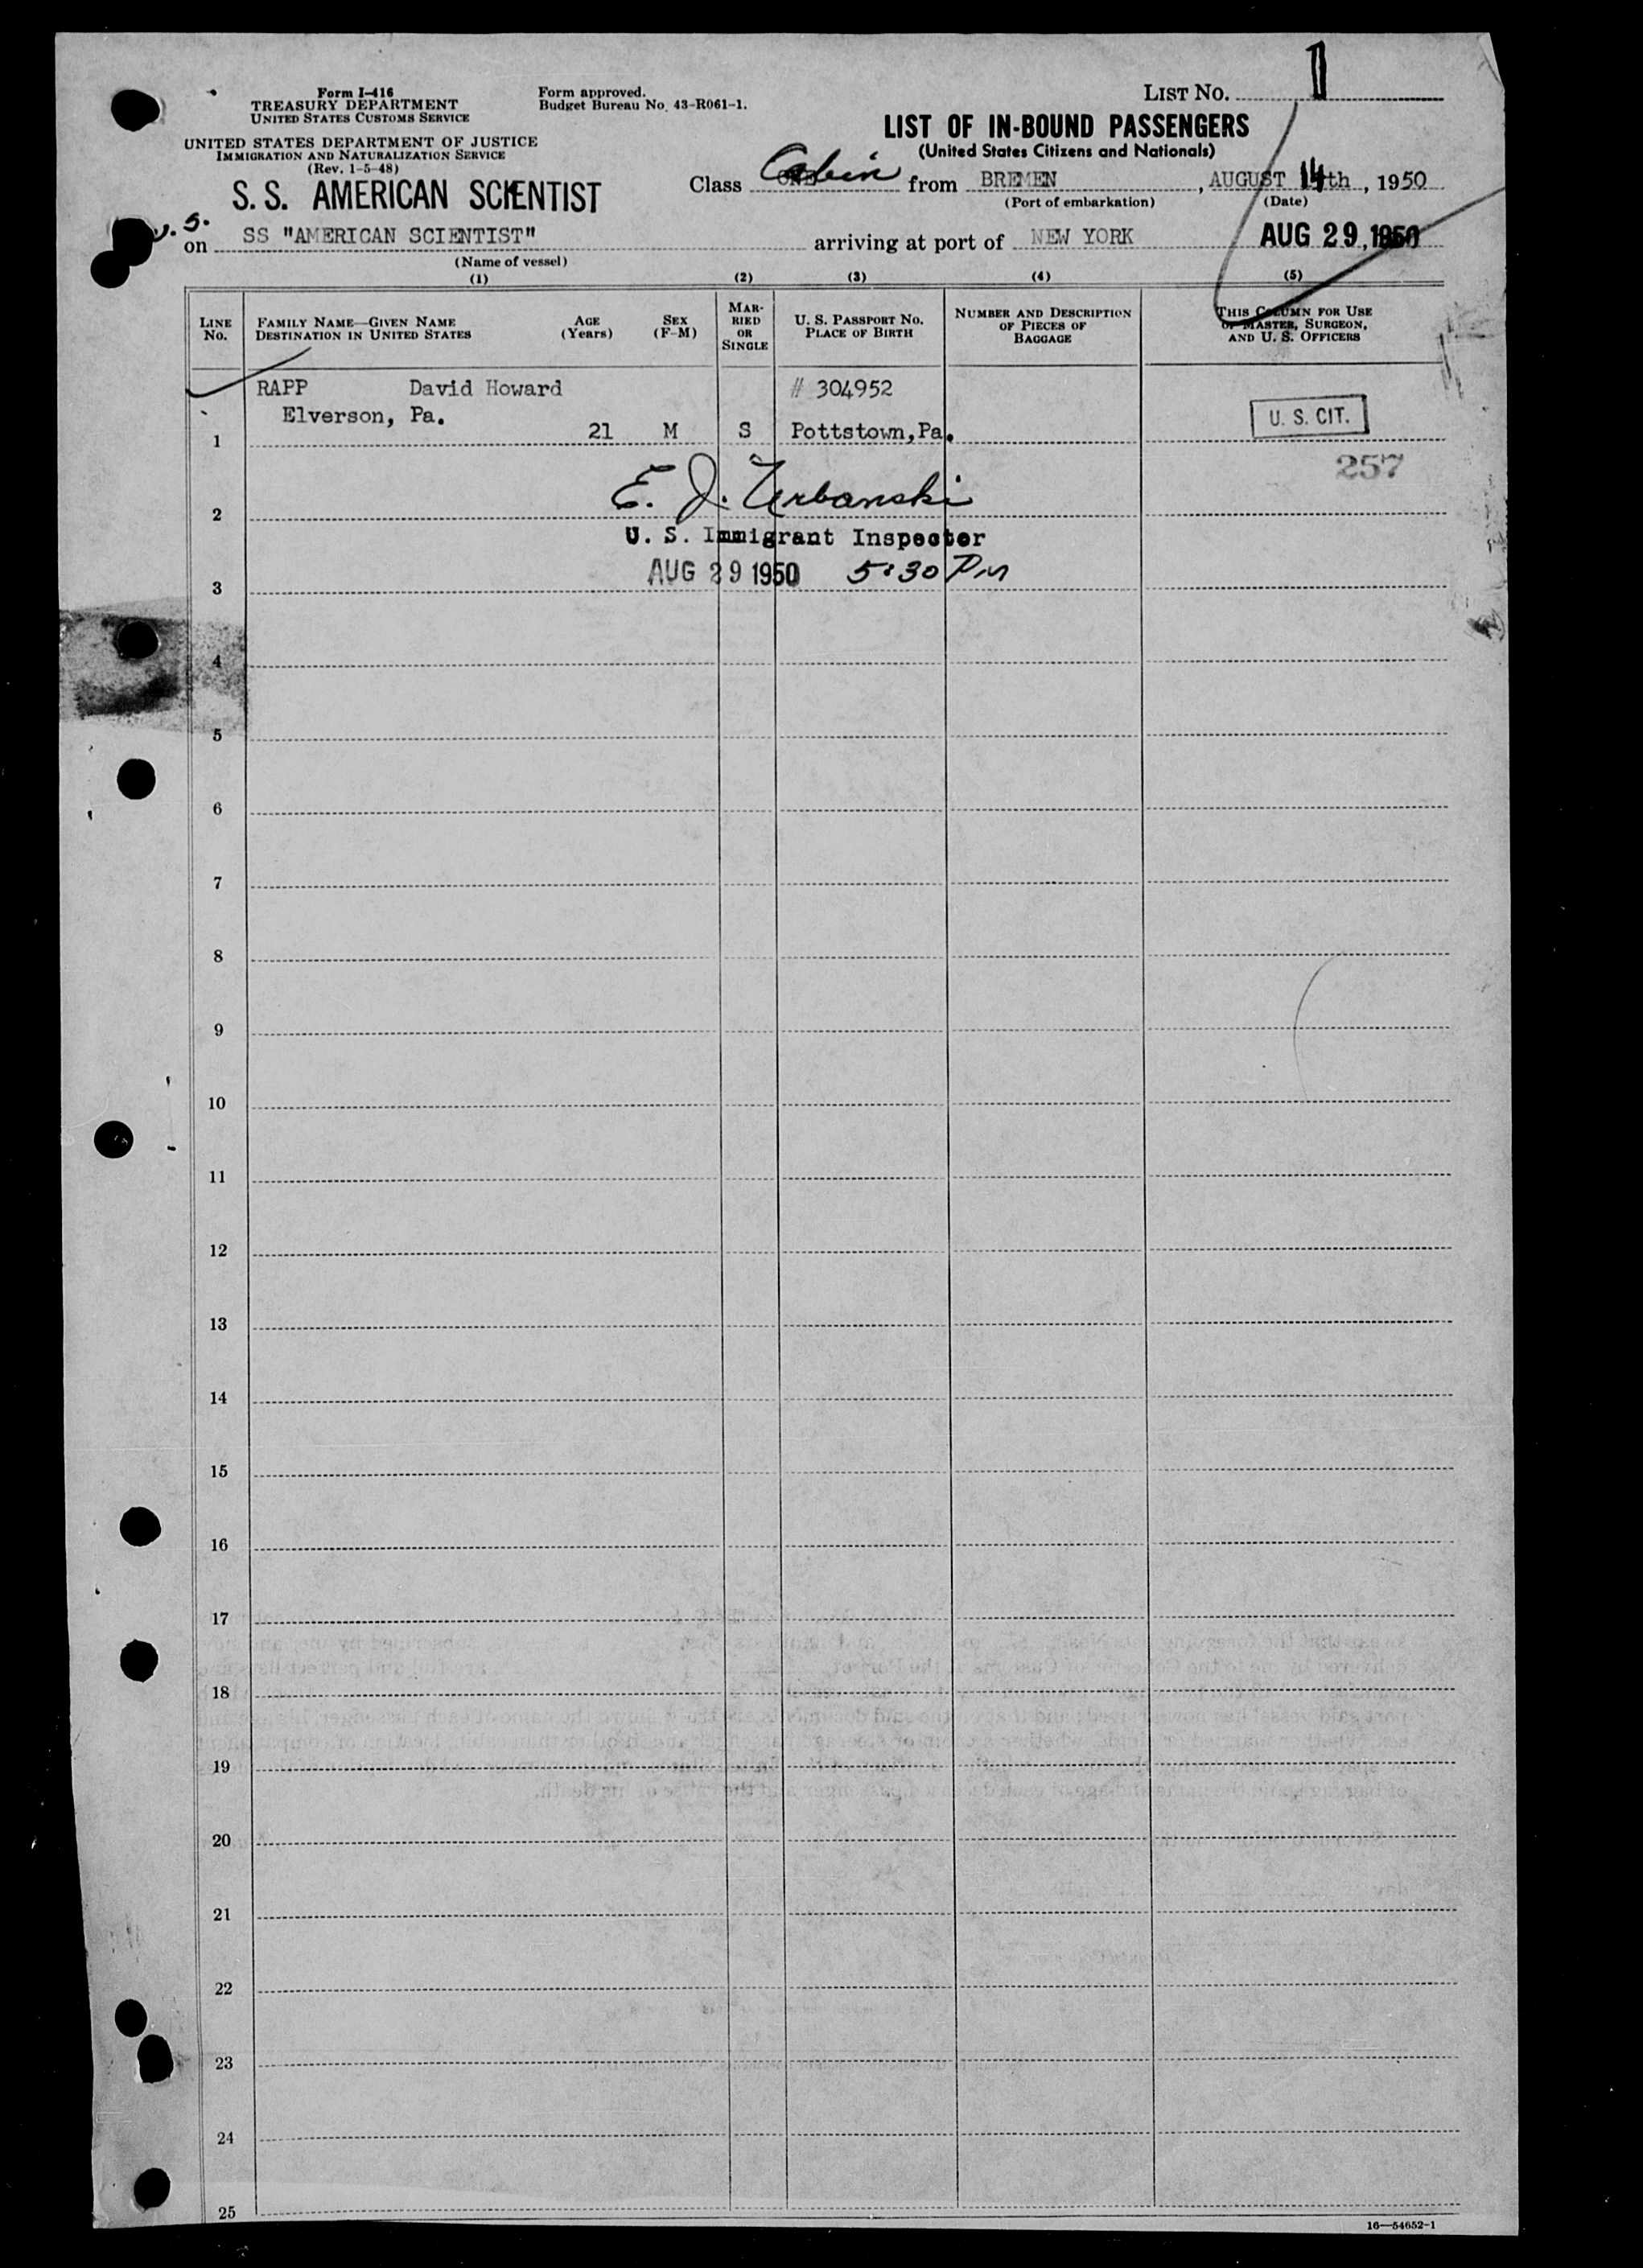 Form I-416
TREASURY DEPARTMENT
UNITED STATES CUSTOMS SERVICE
UNITED STATES DEPARTMENT OF JUSTICE
IMMIGRATION AND NATURALIZATION SERVICE
(Rev. 1-5-48)
Form approved.
Budget Bureau No. 43-R061-1.
LIST NO. 1
LIST OF IN-BOUND PASSENGERS
(United States Citizens and Nationals)
S. S. AMERICAN SCIENTIST
Class Cabin from BREMEN, AUGUST 14th, 1950
(Port of embarkation) (Date)
U.S.
on SS "AMERICAN SCIENTIST" arriving at port of NEW YORK AUG 29, 1950
(Name of vessel)
(1) (2) (3) (4) (5)
LINE NO.
FAMILY NAME—GIVEN NAME
DESTINATION IN UNITED STATES
AGE
(Years)
SEX
(F-M)
MAR-
RIED
OR
SINGLE
U. S. PASSPORT NO.
PLACE OF BIRTH
NUMBER AND DESCRIPTION
OF PIECES OF
BAGGAGE
THIS COLUMN FOR USE
OF MASTER, SURGEON,
AND U. S. OFFICERS
RAPP David Howard # 304952
Elverson, Pa. U. S. CIT.
1 21 M S Pottstown,Pa.
257
E. J. Urbanski
2
U. S. Immigrant Inspector
AUG 29 1950 5:30 PM
3
4
5
6
7
8
9
10
11
12
13
14
15
16
17
18
19
20
21
22
23
24
25
16—54652-1